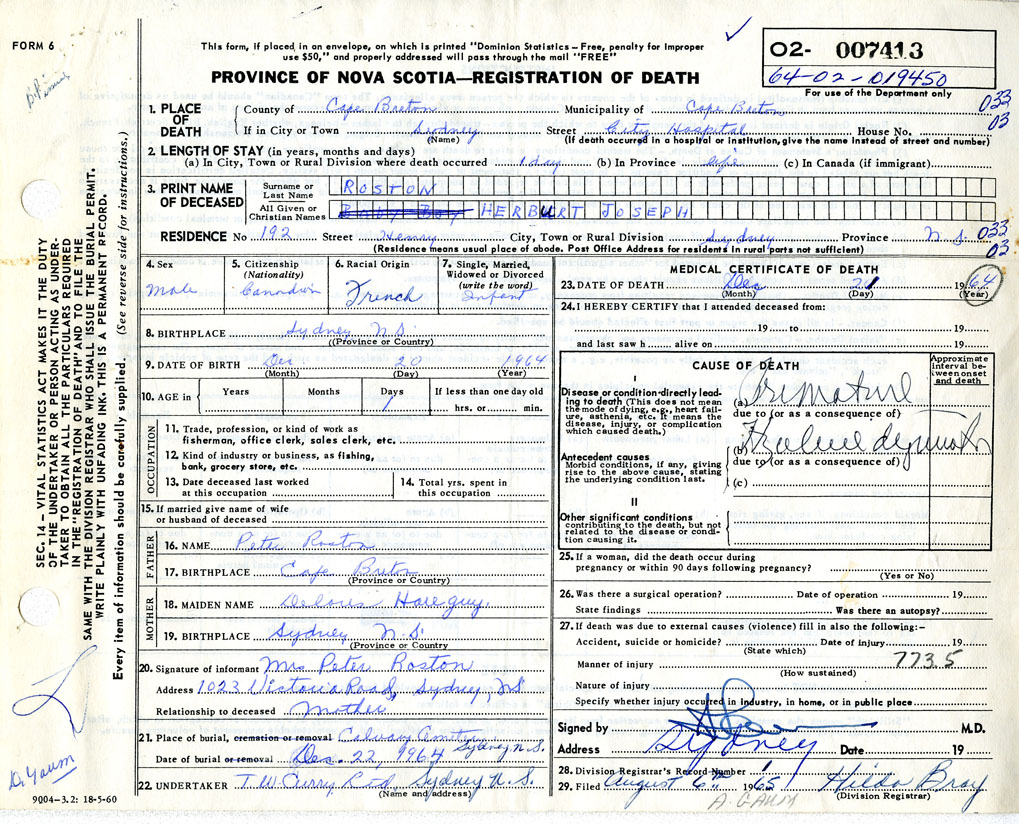 FORM 6
This form, if placed in an envelope, on which is printed "Dominion Statistics – Free, penalty for improper
use $50," and properly addressed will pass through the mail "FREE"
PROVINCE OF NOVA SCOTIA—REGISTRATION OF DEATH
02- 007413
64-02-019450
For use of the Department only
033
03
1. PLACE OF DEATH County of Cape Breton Municipality of Cape Breton
If in City or Town Sydney Street City Hospital House No.
(Name) (If death occurred in a hospital or institution, give the name instead of street and number)
2. LENGTH OF STAY (in years, months and days)
(a) In City, Town or Rural Division where death occurred 1 day (b) In Province Life (c) In Canada (if immigrant)
3. PRINT NAME OF DECEASED
Surname or Last Name ROSTON
All Given or Christian Names Baby Boy HERBURT JOSEPH
RESIDENCE No 192 Street Henry City, Town or Rural Division Sydney Province N S 033
03
(Residence means usual place of abode. Post Office Address for residents in rural parts not sufficient)
4. Sex
Male
5. Citizenship
(Nationality)
Canadian
6. Racial Origin
French
7. Single, Married,
Widowed or Divorced
(write the word)
Infant
8. BIRTHPLACE Sydney N.S.
(Province or Country)
9. DATE OF BIRTH Dec 20 1964
(Month) (Day) (Year)
10. AGE in Years Months Days If less than one day old
1
hrs. or min.
OCCUPATION
11. Trade, profession, or kind of work as
fisherman, office clerk, sales clerk, etc.
12. Kind of industry or business, as fishing,
bank, grocery store, etc
13. Date deceased last worked
at this occupation
14. Total yrs. spent in
this occupation
15. If married give name of wife
or husband of deceased
FATHER
16. NAME Peter Roston
17. BIRTHPLACE Cape Breton
(Province or Country)
MOTHER
18. MAIDEN NAME Delores
19. BIRTHPLACE Sydney N.S.
(Province or Country
20. Signature of informant Mrs Peter Roston
Address 1023 Victoria Road, Sydney, NS
Relationship to deceased Mother
21. Place of burial, cremation or removal Calvary Cemetery Sydney, N.S.
Date of burial or removal Dec. 22, 1964
22. UNDERTAKER T W Curry Ltd, Sydney N.S.
(Name and address)
9004-3.2: 18-5-60
MEDICAL CERTIFICATE OF DEATH
23. DATE OF DEATH Dec 21 1964
(Month) (Day) (Year)
24. I HEREBY CERTIFY that I attended deceased from:
19 to 19
and last saw h alive on 19
CAUSE OF DEATH
Approximate
interval be-
tween onset
and death
I
Disease or condition directly lead-
ing to death (This does not mean
the mode of dying, e.g., heart fail-
ure, asthenia, etc. It means the
disease, injury, or complication
which caused death.)
(a) Premature
due to (or as a consequence of)
Antecedent causes
Morbid conditions, if any, giving
rise to the above cause, stating
the underlying condition last.
(b)
due to (or as a consequence of)
(c)
II
Other significant conditions
contributing to the death, but not
related to the disease or condi-
tion causing it.
25. If a woman, did the death occur during
pregnancy or within 90 days following pregnancy?
(Yes or No)
26. Was there a surgical operation? Date of operation 19
State findings Was there an autopsy?
27. If death was due to external causes (violence) fill in also the following:–
Accident, suicide or homicide? Date of injury 19
(State which)
773.5
Manner of injury
(How sustained)
Nature of injury
Specify whether injury occurred in industry, in home, or in public place
Signed by M.D.
Address Sydney Date 19
28. Division Registrar's Record Number 1
29. Filed August 6th 1965 Hilda Bray
A. GAUM (Division Registrar)
SEC. 14 – VITAL STATISTICS ACT MAKES IT THE DUTY
OF THE UNDERTAKER OR PERSON ACTING AS UNDER-
TAKER TO OBTAIN ALL THE PARTICULARS REQUIRED
IN THE "REGISTRATION OF DEATH" AND TO FILE THE
SAME WITH THE DIVISION REGISTRAR WHO SHALL ISSUE THE BURIAL PERMIT.
WRITE PLAINLY WITH UNFADING INK. THIS IS A PERMANENT RECORD.
Every item of information should be carefully supplied. (See reverse side for instructions.)
Gaum